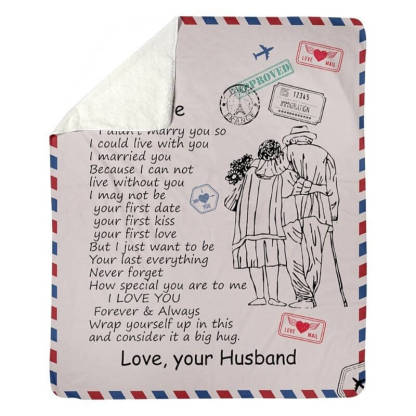 APPROVED
LOVE MAIL
12345
IMMIGRATION
e
I didn't marry you so
I could live with you
I married you
Because I can not
live without you
I may not be
your first date
your first kiss
your first love
But I just want to be
Your last everything
Never forget
How special you are to me
I LOVE YOU
Forever & Always
Wrap yourself up in this
and consider it a big hug.
LOVE MAIL
Love, your Husband